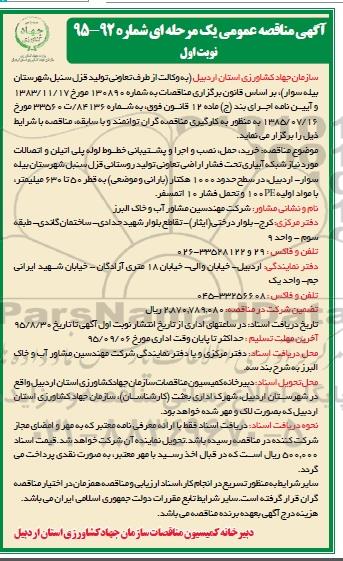 آگهی مناقصه عمومی یک مرحله ای شماره ۹۲-۹۵
نوبت اول
سازمان جهاد کشاورزی استان اردبیل (به وکالت از طرف تعاونی تولید قزل سنبل شهرستان
بیله سوار)، بر اساس قانون برگزاری مناقصات به شماره ۱۳۰۸۹۰ مورخ ۱۳۸۳/۱۱/۱۷
و آیین نامه اجرای بند (ج) ماده ۱۲ قانون فوق، به شماره ۸۴۱۳۶/ت ۳۳۵۶۰ مورخ
۱۳۸۵/۰۷/۱۶ به منظور به کارگیری مناقصه گران توانمند و با سابقه، مناقصه با شرایط
ذیل را برگزار می نماید.
موضوع مناقصه: خرید، حمل، نصب و اجرا و پشتیبانی خطوط لوله پلی اتیلن و اتصالات
مورد نیاز شبکه آبیاری تحت فشار اراضی تعاونی تولید روستایی قزل سنبل شهرستان بیله
سوار- اردبیل، در سطح حدود ۱۰۰۰ هکتار (بارانی و موضعی) به قطر ۵۰ تا ۶۳۰ میلیمتر،
با مواد اولیه PE۱۰۰ و تحمل فشار ۱۰ اتمسفر.
نام و نشانی مشاور: شرکت مهندسین مشاور آب و خاک البرز
دفتر مرکزی: کرج- بلوار درختی (ایثار)- تقاطع بلوار شهید حدادی- ساختمان گاندی- طبقه
سوم - واحد ۹
تلفن و فاکس: ۲۹ و ۳۳۵۲۸۱۲۲-۰۲۶
دفتر نمایندگی: اردبیل- خیابان والی- خیابان ۱۸ متری آزادگان- خیابان شهید ایرانی
جم- واحد یک
تلفن و فاکس: ۳۳۲۵۶۶۰۸-۰۴۵
تضمین شرکت در مناقصه: ۲,۸۷۰,۷۸۹,۰۸۰ ریال
تاریخ دریافت اسناد: در ساعتهای اداری از تاریخ انتشار نوبت اول آگهی تا تاریخ ۹۵/۸/۳۰
آخرین مهلت تسلیم: حداکثر تا پایان وقت اداری مورخ ۹۵/۰۹/۰۶
محل دریافت اسناد: دفتر مرکزی و یا دفتر نمایندگی شرکت مهندسین مشاور آب و خاک
البرز به شرح بند سه.
محل تحویل اسناد: دبیرخانه کمیسیون مناقصات سازمان جهاد کشاورزی استان اردبیل واقع
در شهرستان اردبیل، شهرک اداری بعثت (کارشناسان)، سازمان جهاد کشاورزی استان
اردبیل که بصورت لاک و مهر شده خواهد بود.
نحوه دریافت اسناد: دریافت اسناد فقط با ارائه معرفی نامه معتبر که به مهر و امضای مجاز
شرکت کننده در مناقصه رسیده باشد، تحویل نماینده آن شرکت خواهد شد. قیمت اسناد
۵۰۰,۰۰۰ ریال است که در قبال اخذ رسید با مهر معتبر، به صورت نقدی پرداخت می
گردد.
سایر شرایط به منظور تسریع در انجام کار، اسناد ارزیابی و مناقصه همزمان در اختیار مناقصه
گران قرار گرفته است. سایر شرایط تابع مقررات دولت جمهوری اسلامی ایران می باشد.
هزینه درج آگهی بعهده برنده مناقصه می باشد.
دبیرخانه کمیسیون مناقصات سازمان جهاد کشاورزی استان اردبیل